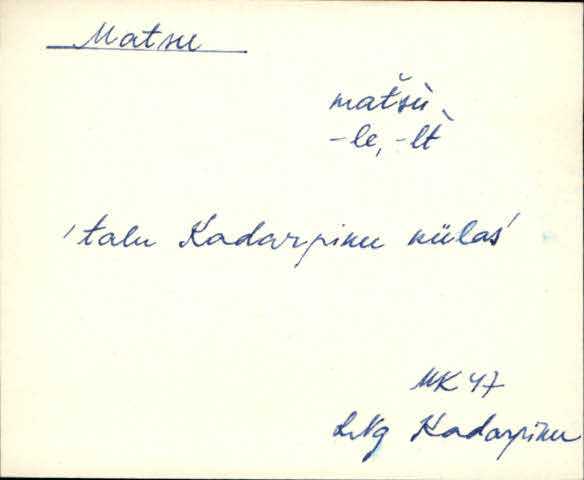 Matsu
matšu
-le, -lt
'talu Kadarpiku külas'
MK 47
LNg Kadarpiku